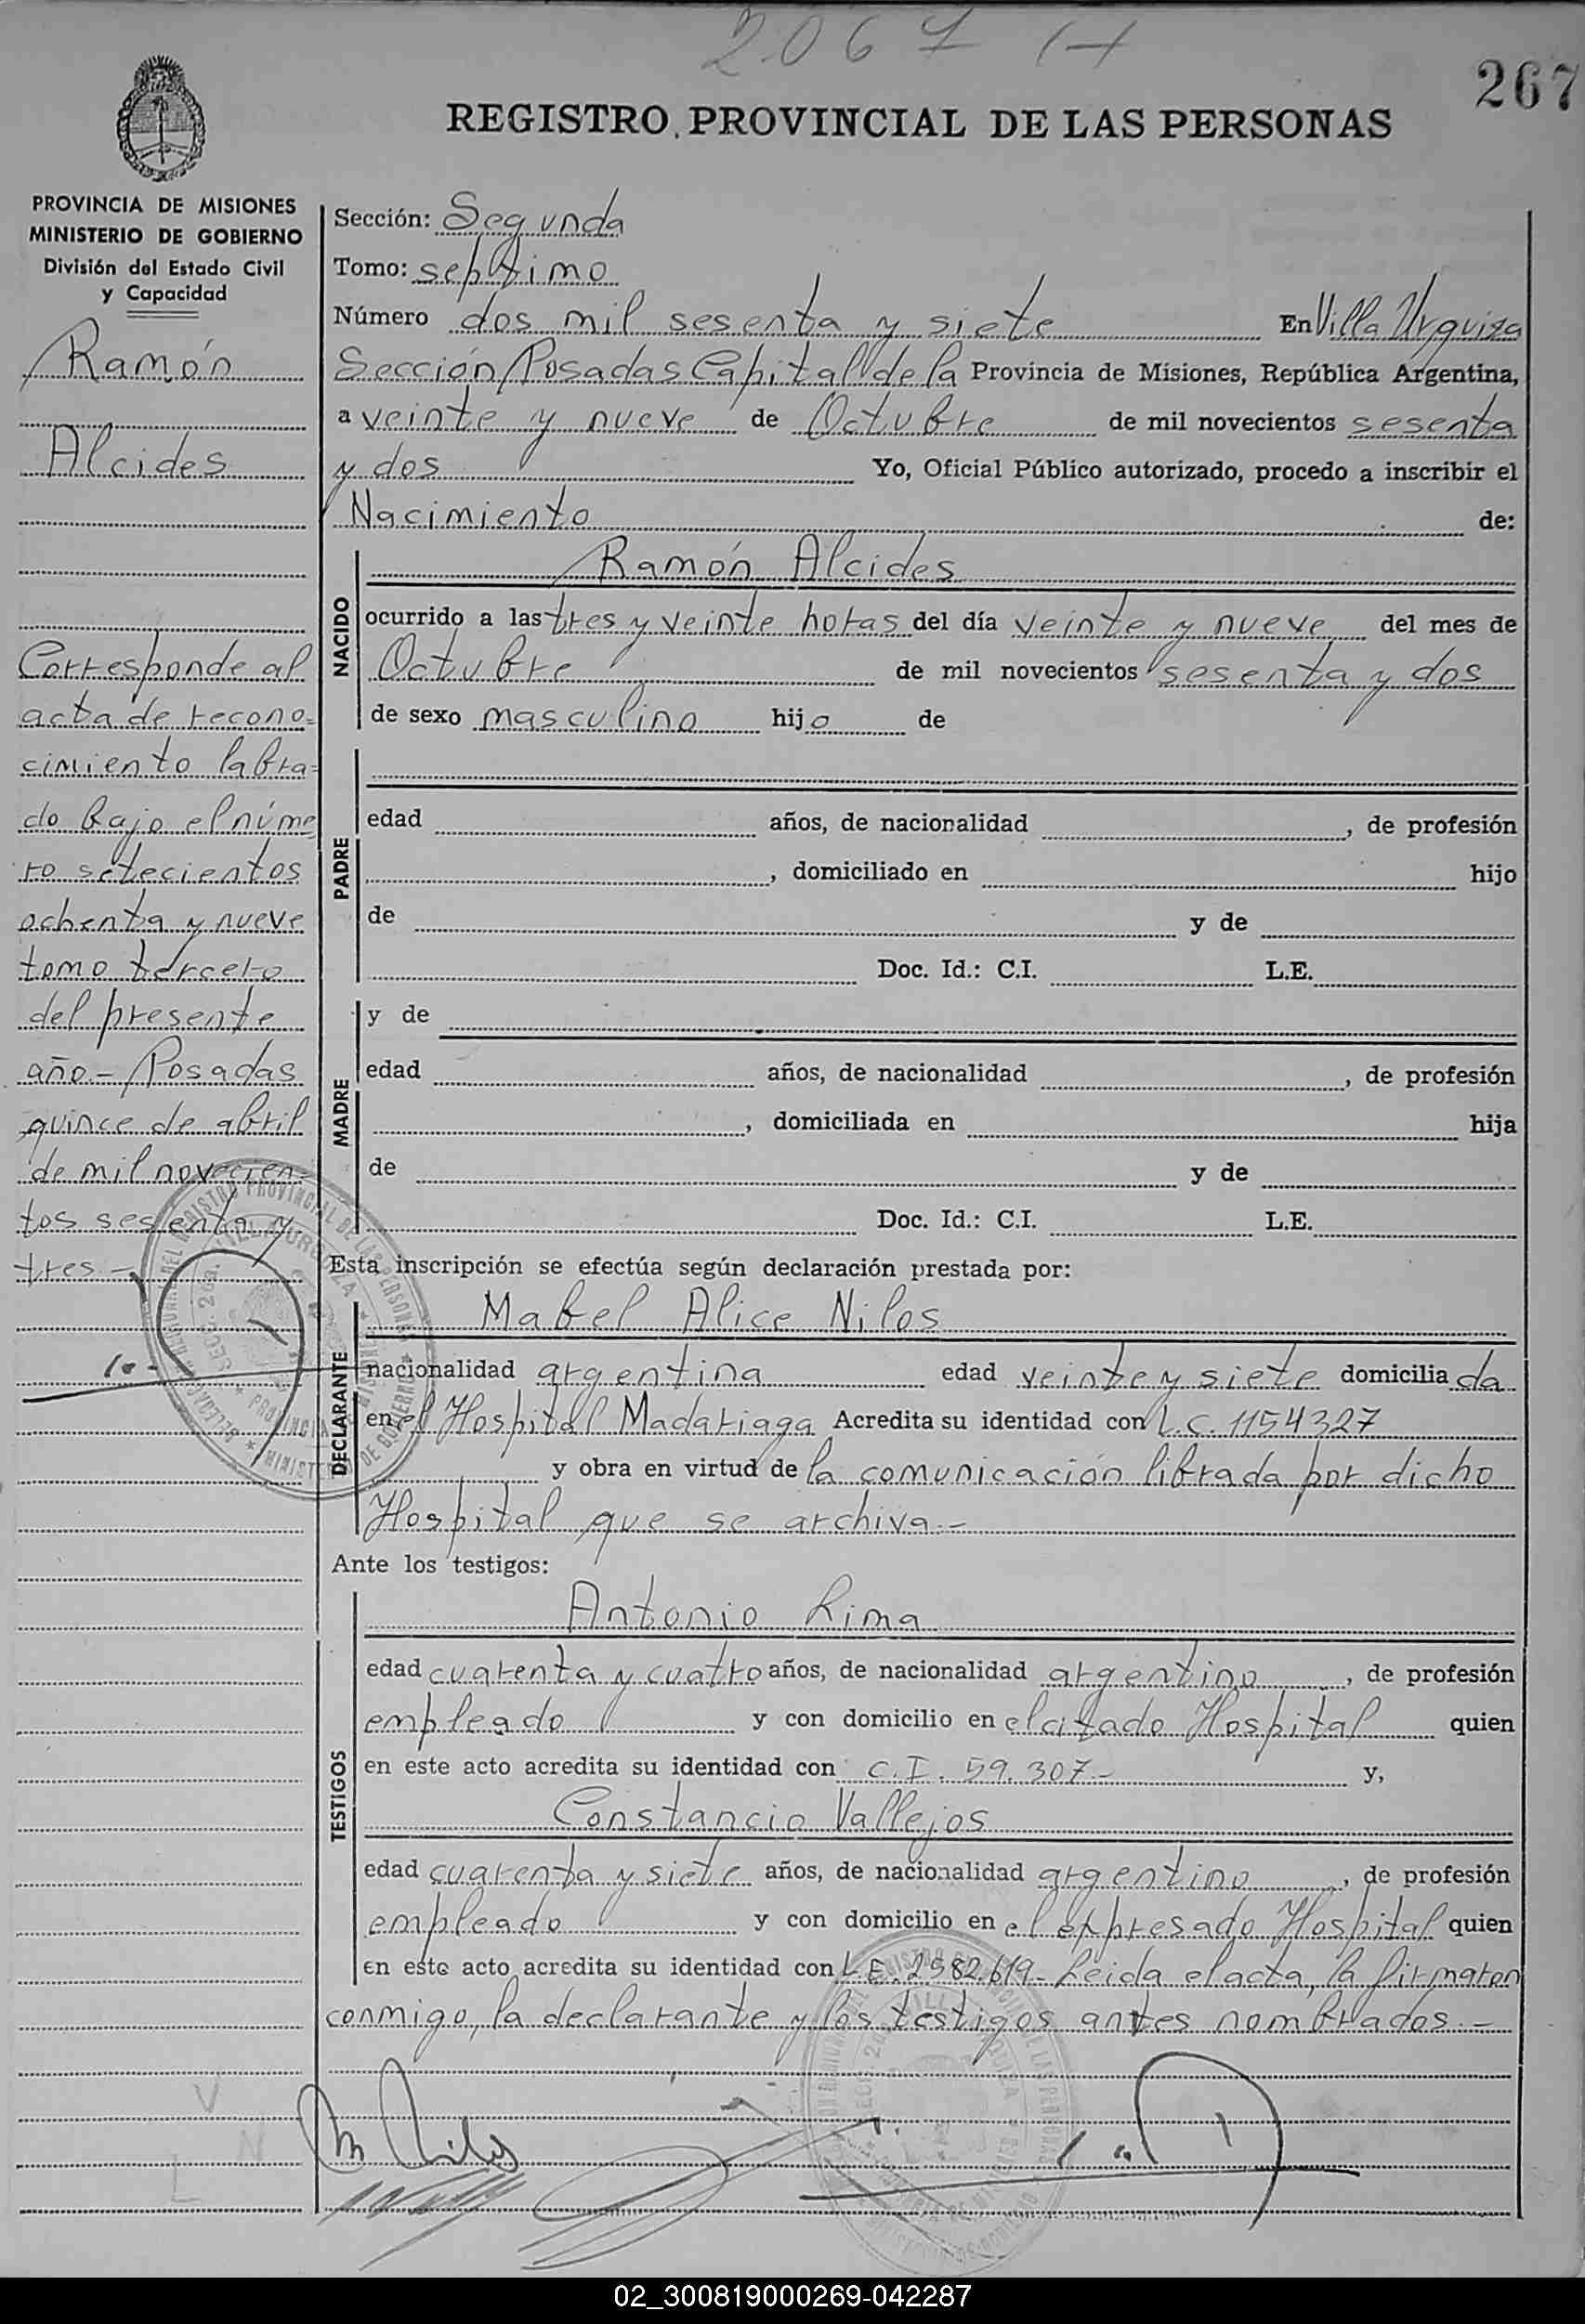 2067 H
267
REGISTRO PROVINCIAL DE LAS PERSONAS
PROVINCIA DE MISIONES
MINISTERIO DE GOBIERNO
División del Estado Civil
y Capacidad
Ramón
Alcides
Corresponde al
acta de recono-
cimiento labra-
do bajo el núme
ro setecientos
ochenta y nueve
tomo tercero
del presente
año.- Posadas
quince de abril
de mil novecien-
tos sesenta y
tres.-
Sección: Segunda
Tomo: septimo
Número dos mil sesenta y siete En Villa Urquiza
Sección Posadas Capital de la Provincia de Misiones, República Argentina,
a veinte y nueve de Octubre de mil novecientos sesenta
y dos Yo, Oficial Público autorizado, procedo a inscribir el
Nacimiento de:
NACIDO
Ramón Alcides
ocurrido a las tres y veinte horas del día veinte y nueve del mes de
Octubre de mil novecientos sesenta y dos
de sexo masculino hijo de
PADRE
edad años, de nacionalidad , de profesión
, domiciliado en hijo
de y de
Doc. Id.: C.I. L.E.
MADRE
y de
edad años, de nacionalidad , de profesión
, domiciliada en hija
de y de
Doc. Id.: C.I. L.E.
Esta inscripción se efectúa según declaración prestada por:
DECLARANTE
Mabel Alice Nilos
nacionalidad argentina edad veinte y siete domiciliada
en el Hospital Madariaga Acredita su identidad con L.C. 1154327
y obra en virtud de la comunicación librada por dicho
Hospital que se archiva.-
Ante los testigos:
TESTIGOS
Antonio Lima
edad cuarenta y cuatro años, de nacionalidad argentino, de profesión
empleado y con domicilio en el citado Hospital quien
en este acto acredita su identidad con C.I. 59.307- y,
Constancio Vallejos
edad cuarenta y siete años, de nacionalidad argentino, de profesión
empleado y con domicilio en el expresado Hospital quien
en este acto acredita su identidad con L.E. 2582.619- Leida el acta, la firmaron
conmigo, la declarante y los testigos antes nombrados.-
02_300819000269-042287